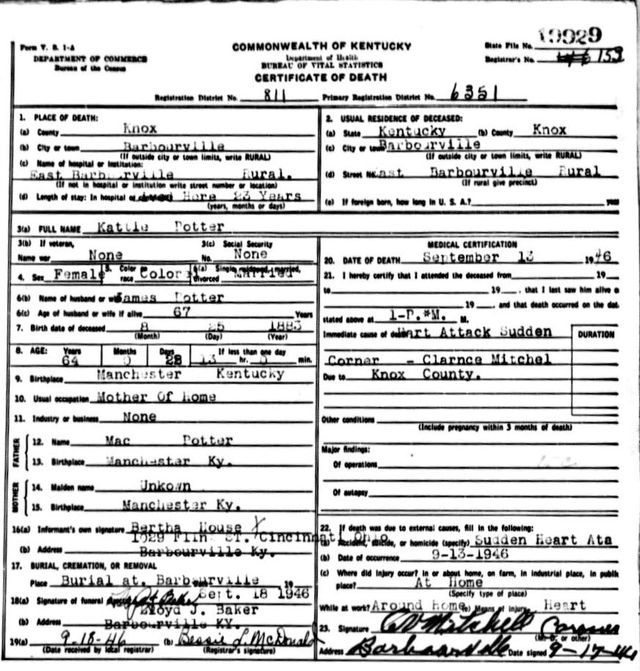 19929
Form V. S. 1-A
DEPARTMENT OF COMMERCE
Bureau of the Census
COMMONWEALTH OF KENTUCKY
Department of Health
BUREAU OF VITAL STATISTICS
CERTIFICATE OF DEATH
State File No.
Registrar's No. 153
Registration District No. 811 Primary Registration District No. 6351
1. PLACE OF DEATH:
(a) County Knox
(b) City or town Barbourville
(If outside city or town limits, write RURAL)
(c) Name of hospital or institution:
East Barbourville Rural.
(If not in hospital or institution write street number or location)
(d) Length of stay: In hospital or Here 23 Years
(years, months or days)
2. USUAL RESIDENCE OF DECEASED:
(a) State Kentucky (b) County Knox
(c) City or town Barbourville
(If outside city or town limits, write RURAL)
(d) Street No. East Barbourville Rural
(If rural give precinct)
(e) If foreign born, how long in U. S. A.? years
3(a) FULL NAME Kattie Potter
3(b) If veteran, Name war None
3(c) Social Security No. None
4. Sex Female 5. Color or race Color 6(a) Single, widowed, married, divorced Married
6(b) Name of husband or wife James Potter
6(c) Age of husband or wife if alive 67 Years
7. Birth date of deceased 8 25 1883
(Month) (Day) (Year)
8. AGE: Years Months Days If less than one day
64 0 28 13 hr. 0 min.
9. Birthplace Manchester Kentucky
10. Usual occupation Mother Of Home
11. Industry or business None
FATHER
12. Name Mac Potter
13. Birthplace Manchester Ky.
MOTHER
14. Maiden name Unkown
15. Birthplace Manchester Ky.
16(a) Informant's own signature Bertha House X
1029 Flint St. Cincinnati Ohio
(b) Address Barbourville Ky.
17. BURIAL, CREMATION, OR REMOVAL
Place Burial at. Barbourville 19
Sept. 18 1946
18(a) Signature of funeral
Lloyd J. Baker
(b) Address Barbourville KY.
19(a) 9-18-46 (b) Bessie L McDonald
(Date received by local registrar) (Registrar's signature)
MEDICAL CERTIFICATION
20. DATE OF DEATH September 13 1946
21. I hereby certify that I attended the deceased from 19
to 19 , that I last saw him alive o
19 , and that death occurred on the dat
stated above at 1-P.*M. M.
Immediate cause of death Hart Attack Sudden
DURATION
Corner - Clarnce Mitchel
Due to Knox County.
Other conditions
(Include pregnancy within 3 months of death)
Major findings:
Of operations
Of autopsy
22. If death was due to external causes, fill in the following:
(a) Accident, suicide, or homicide (specify) Sudden Heart Ata
(b) Date of occurrence 9-13-1946
(c) Where did injury occur? In or about home, on farm, in industrial place, in public
place? At Home
(Specify type of place)
While at work? Around Home (e) Means of injury Heart
23. Signature CV Mitchell Coroner
(M. D. or other)
Address Barbourville Date signed 9-17-46